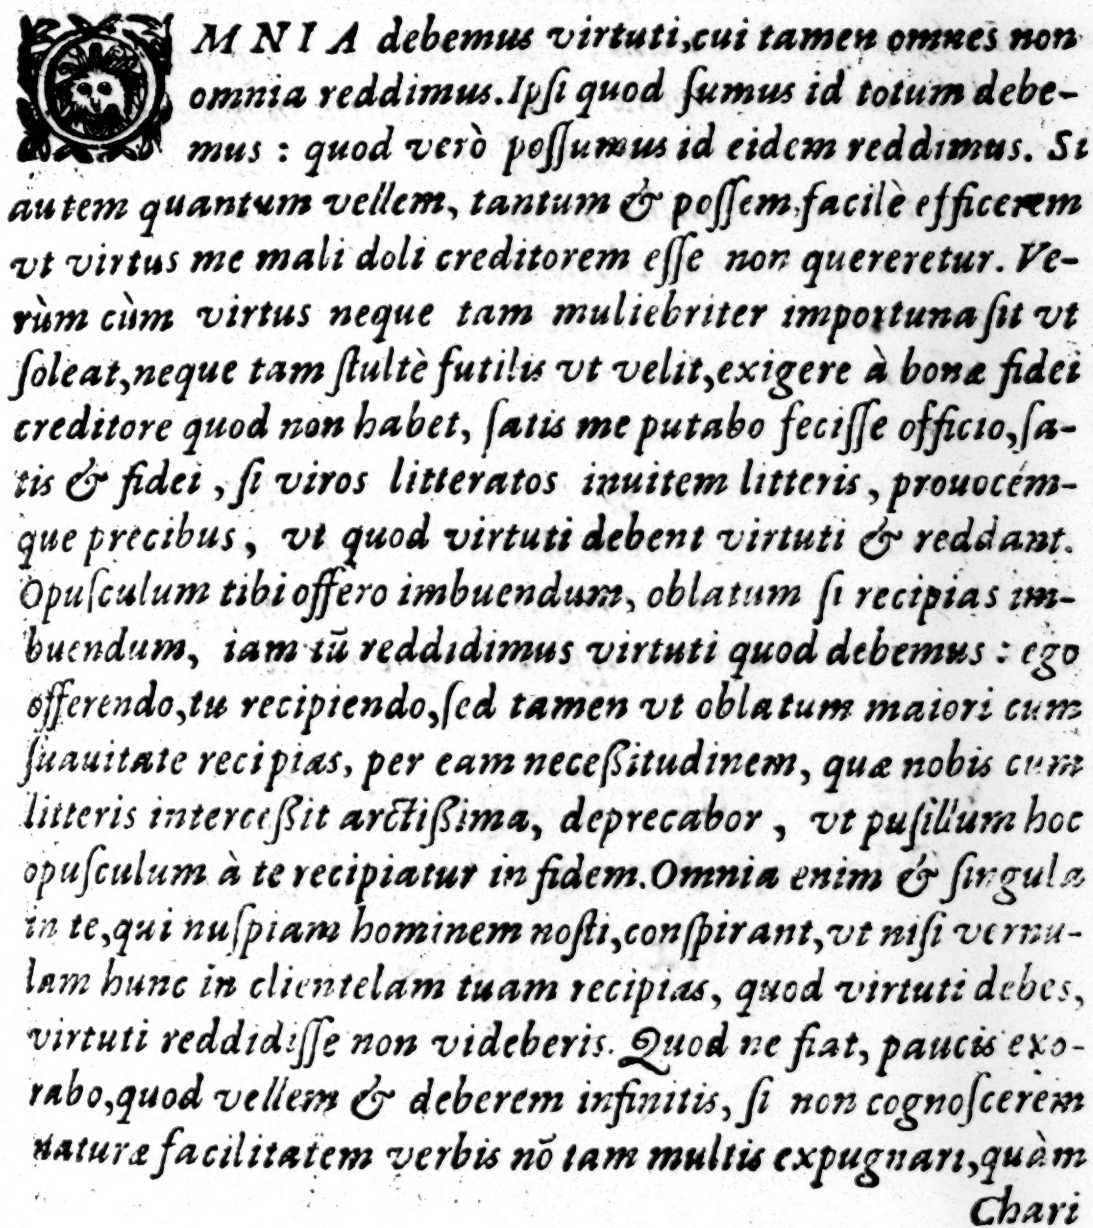 OMNIA debemus virtuti, cui tamen omnes non
omnia reddimus. Ipſi quod ſumus id totum debe-
mus : quod verò poſſumus id eidem reddimus. Si
autem quantum vellem, tantum & poſſem, facilè efficerem
vt virtus me mali doli creditorem eſſe non quereretur. Ve-
rùm cùm virtus neque tam muliebriter importuna ſit vt
ſoleat, neque tam ſtultè futilis vt velit, exigere à bonæ fidei
creditore quod non habet, ſatis me putabo feciſſe officio, ſa-
tis & fidei, ſi viros litteratos inuitem litteris, prouocém-
que precibus, vt quod virtuti debent virtuti & reddant.
Opuſculum tibi offero imbuendum, oblatum ſi recipias im-
buendum, iam tū reddidimus virtuti quod debemus : ego
offerendo, tu recipiendo, ſed tamen vt oblatum maiori cum
ſuauitate recipias, per eam neceßitudinem, quæ nobis cum
litteris interceßit arctißima, deprecabor, vt puſillum hoc
opuſculum à te recipiatur in fidem. Omnia enim & ſingula
in te, qui nuſpiam hominem noſti, conſpirant, vt niſi vernu-
lam hunc in clientelam tuam recipias, quod virtuti debes,
virtuti reddidiſſe non videberis. Quod ne fiat, paucis exo-
rabo, quod vellem & deberem infinitis, ſi non cognoſcerem
naturæ facilitatem verbis nō tam multis expugnari, quàm
Chari